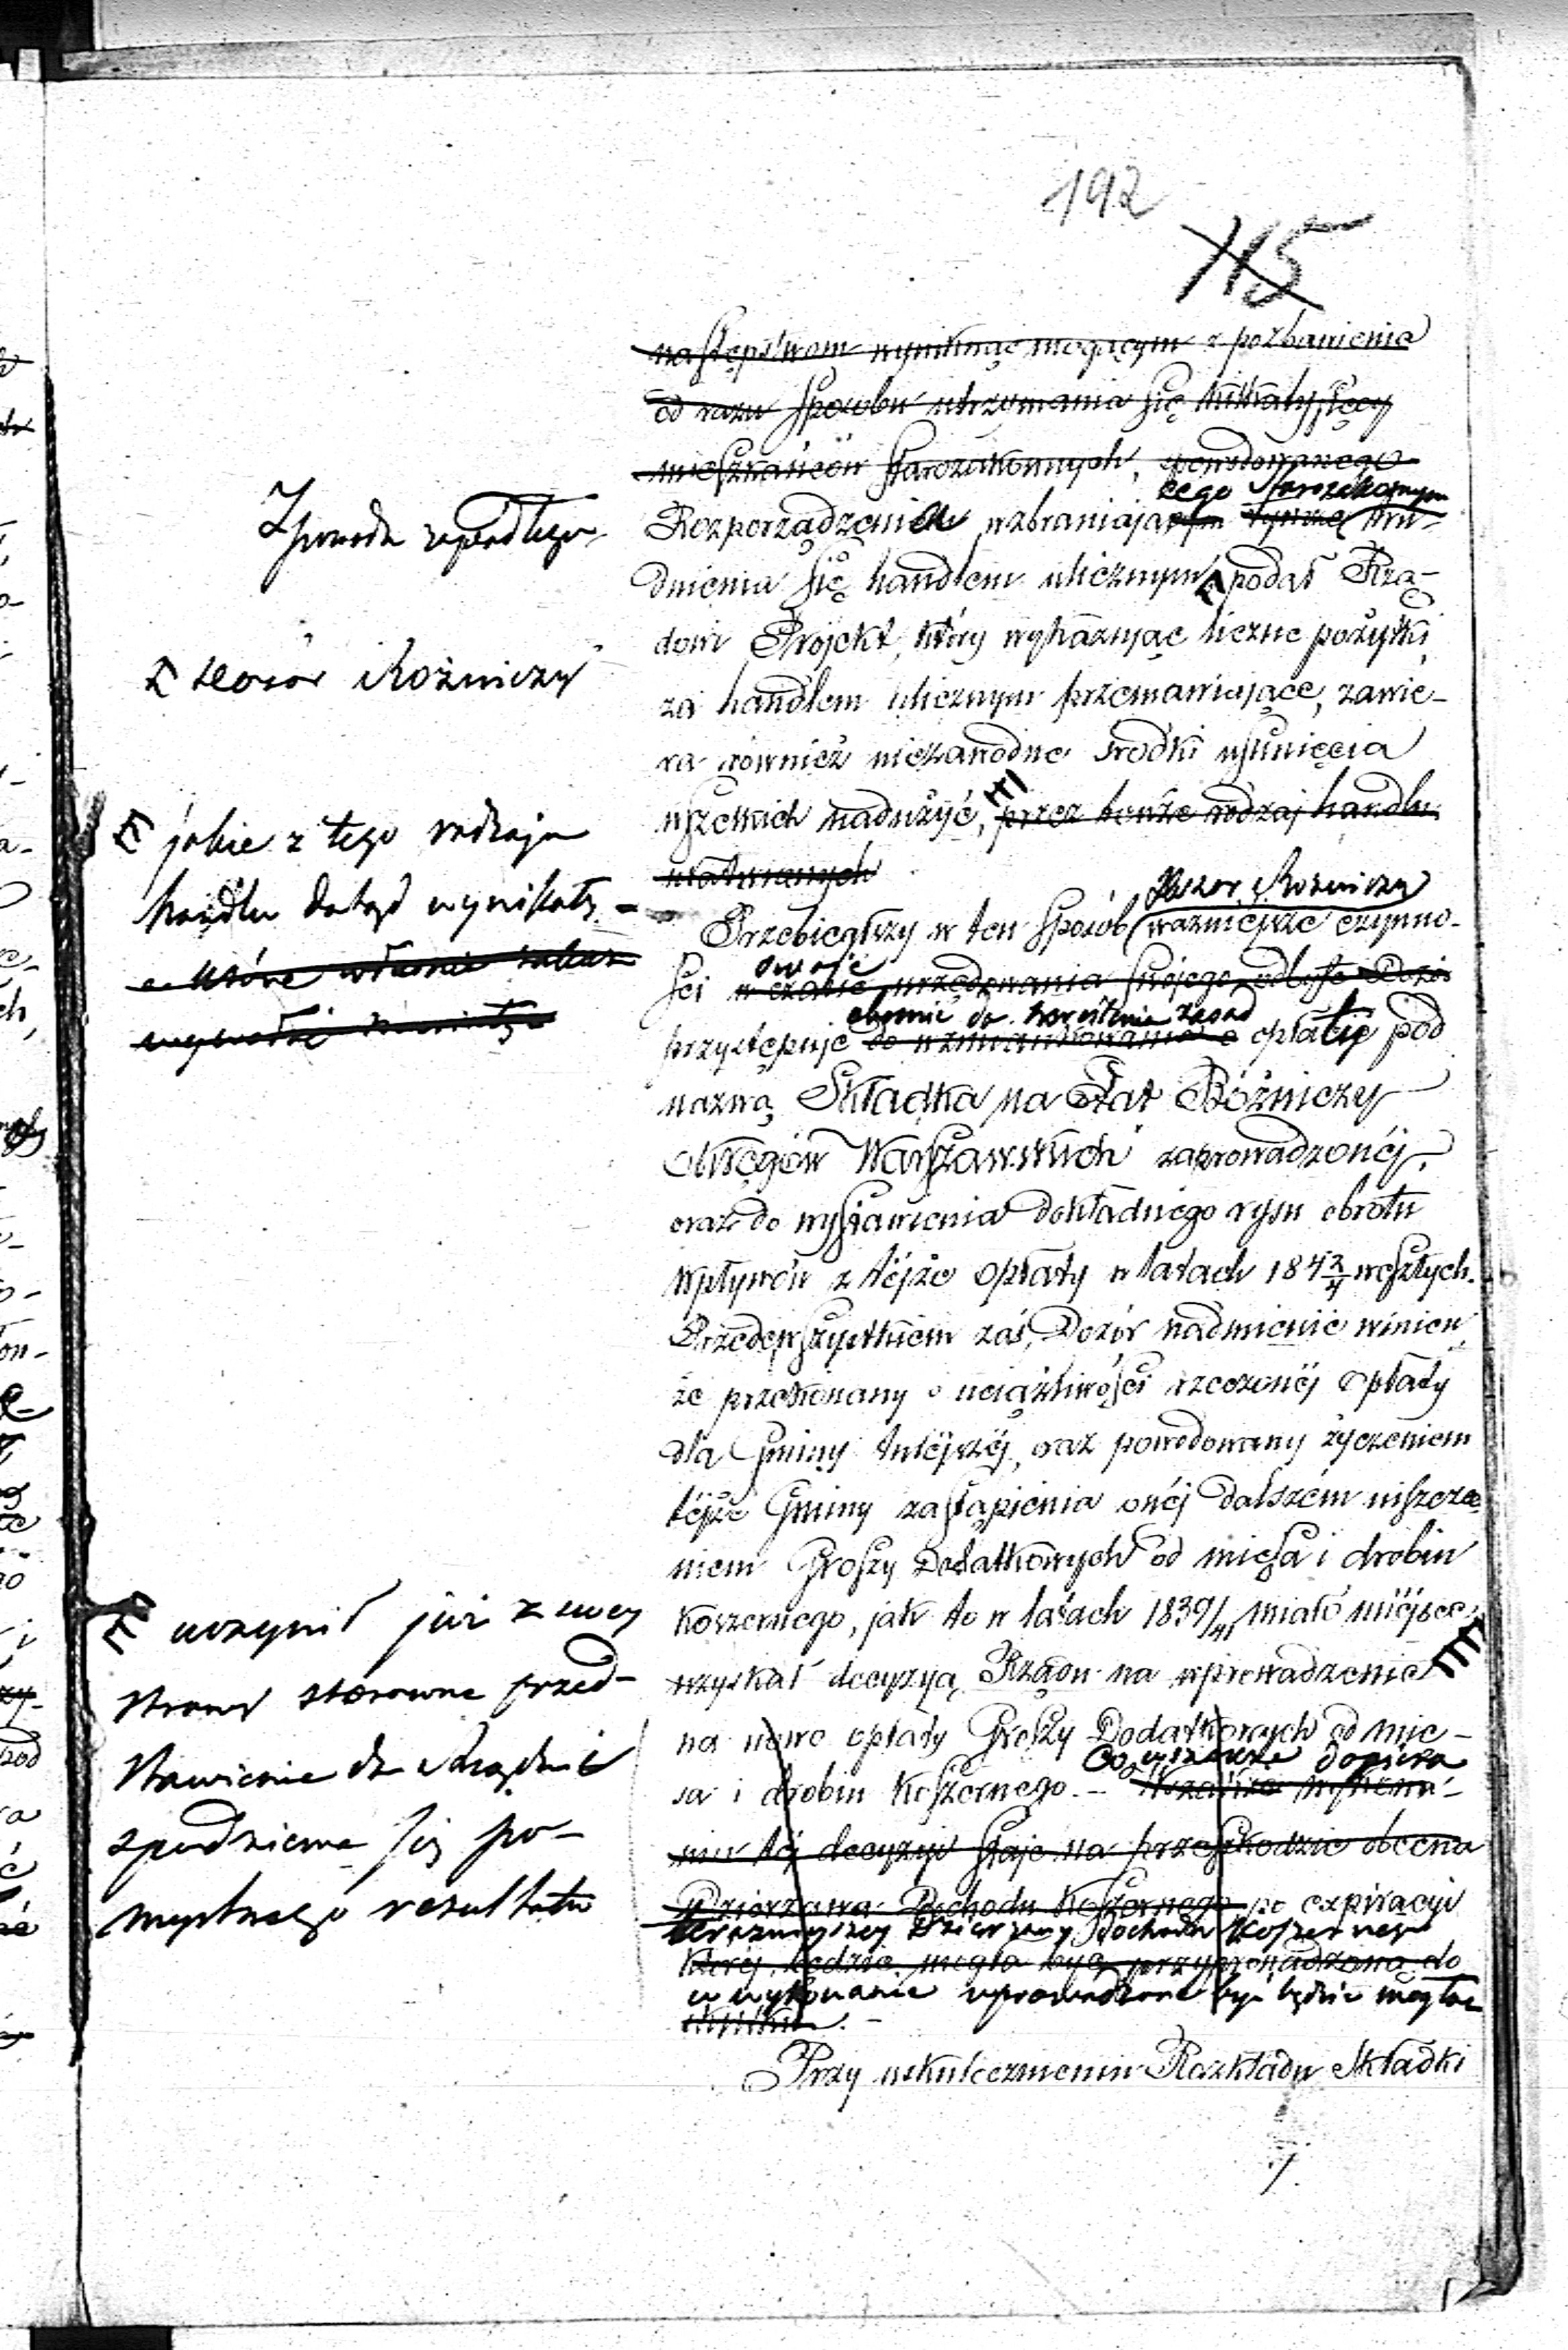 192
115
następstwom wyniknąć mogącym z pozbawienia
od razu sposobu utrzymania się kilka tysięcy
mieszkańców starozakonnych, spowodowanego
cego Starozakonnym
Z powodu zapadłego
Rozporządzenia wzbraniającym tymże tru-
dnienia się handlem ulicznym podał Rzą-
dowi Projekt, który wykazując liczne pożytki
Dozór Bóżniczy
za handlem ulicznym przemawiające, zawie-
ra również niezawodne środki usunięcia
wszelkich nadużyć, przez tenże rodzaj handlu
ułatwianych
jakie z tego rodzaju
handlu dotąd wynikały
Dozór Bóżniczy
Przebiegłszy w ten sposób ważniejsze czynno-
swoje
ści w czasie urzędowania swojego odbyte Dozór
obecnie do skreślenia zasad
przystępuje do wzmiankowania o opłaty pod
nazwą Składka na Etat Bóżniczy
Okręgów Warszawskich zaprowadzonéj,
oraz do wystawienia dokładnego rysu obrotu
wpływów z téjże opłaty w latach 184 2/4 weszłych.
Przedewszystkiem zaś, Dozór nadmienić winien
że przekonany o uciążliwości rzeczonéj opłaty
dla Gminy tutéjszéj, oraz powodowany życzeniem
téjże Gminy zastąpienia onéj dalszém uiszcza
niem Groszy Dodatkowych od mięsa i drobiu
koszernego, jak to w latach 1839/41 miało miéjsce,
uzyskał decyzyą Rządu na wprowadzenie
na nowo opłaty Groszy Dodatkowych od mię-
sa i drobiu koszernego. –
Co wszakże dopiero
niu téj decyzyi staje na przeszkodzie obecna
Dzierżawa Dochodu Koszernego po expiracyi
teraźniejszey Dzierżawy Dochodu Koszernego
któréj, będzie mogła być przyprowadzona do
w wykonanie wprowadzone być będzie mogło
skutku. –
uczynił już z swey
strony stosowne przed-
stawienie do Rządu i
spodziewa się po-
myślnego rezultatu
Przy uskutecznieniu Rozkładu Składki